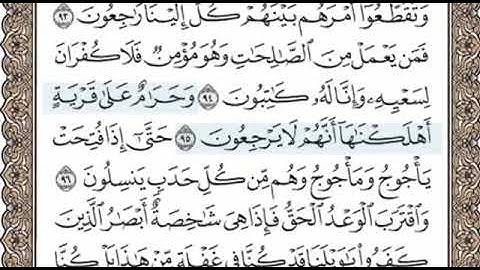 وَتَقَطَّعُوٓا۟ أَمْرَهُم بَيْنَهُمْ كُلٌّ إِلَيْنَا رَٰجِعُونَ ٩٣
فَمَن يَعْمَلْ مِنَ ٱلصَّٰلِحَٰتِ وَهُوَ مُؤْمِنٌ فَلَا كُفْرَانَ
لِسَعْيِهِۦ وَإِنَّا لَهُۥ كَٰتِبُونَ ٩٤ وَحَرَٰمٌ عَلَىٰ قَرْيَةٍ
أَهْلَكْنَٰهَآ أَنَّهُمْ لَا يَرْجِعُونَ ٩٥ حَتَّىٰٓ إِذَا فُتِحَتْ
يَأْجُوجُ وَمَأْجُوجُ وَهُم مِّن كُلِّ حَدَبٍ يَنسِلُونَ ٩٦
وَٱقْتَرَبَ ٱلْوَعْدُ ٱلْحَقُّ فَإِذَا هِىَ شَٰخِصَةٌ أَبْصَٰرُ ٱلَّذِينَ
كَفَرُوا۟ يَٰوَيْلَنَا قَدْ كُنَّا فِى غَفْلَةٍ مِّنْ هَٰذَا بَلْ كُنَّا